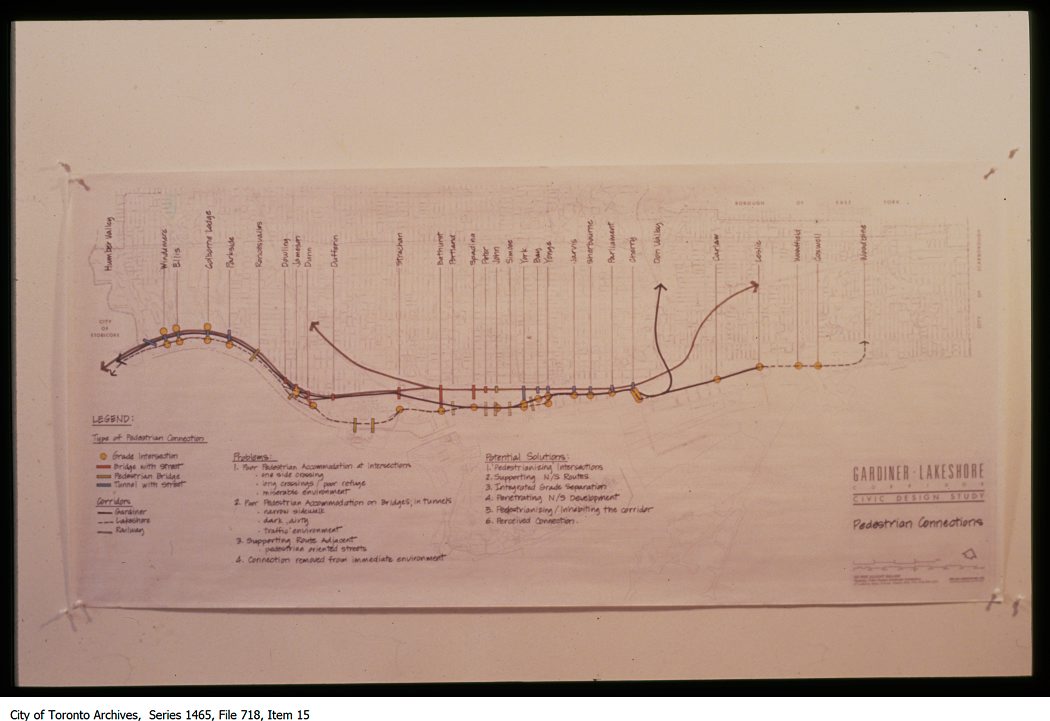 BOROUGH OF EAST YORK
Humber Valley
Windermere
Ellis
Colborne Lodge
Parkside
Roncesvalles
Dowling
Jameson
Dunn
Dufferin
Strachan
Bathurst
Portland
Spadina
Peter
John
Simcoe
York
Bay
Yonge
Jarvis
Sherbourne
Parliament
Cherry
Don Valley
Carlaw
Leslie
Woodfield
Coxwell
Woodbine
CITY
OF
ETOBICOKE
LEGEND:
Type of Pedestrian Connection
Grade Intersection
Bridge with Street
Pedestrian Bridge
Tunnel with Street
Corridors
Gardiner
Lakeshore
Railway
Problems:
1. Poor Pedestrian Accommodation at Intersections
- one side crossing
- long crossings / poor refuge
- miserable environment
2. Poor Pedestrian Accommodation on Bridges, in tunnels
- narrow sidewalk
- dark, dirty
- traffic environment
3. Supporting Route Adjacent
- pedestrian oriented streets
4. Connection removed from immediate environment
Potential Solutions:
1. Pedestrianizing Intersections
2. Supporting N/S Routes
3. Integrated Grade Separation
4. Penetrating N/S Development
5. Pedestrianizing / Inhabiting the corridor
6. Perceived Connection.
GARDINER · LAKESHORE
CORRIDOR
CIVIC DESIGN STUDY
Pedestrian Connections
City of Toronto Archives, Series 1465, File 718, Item 15